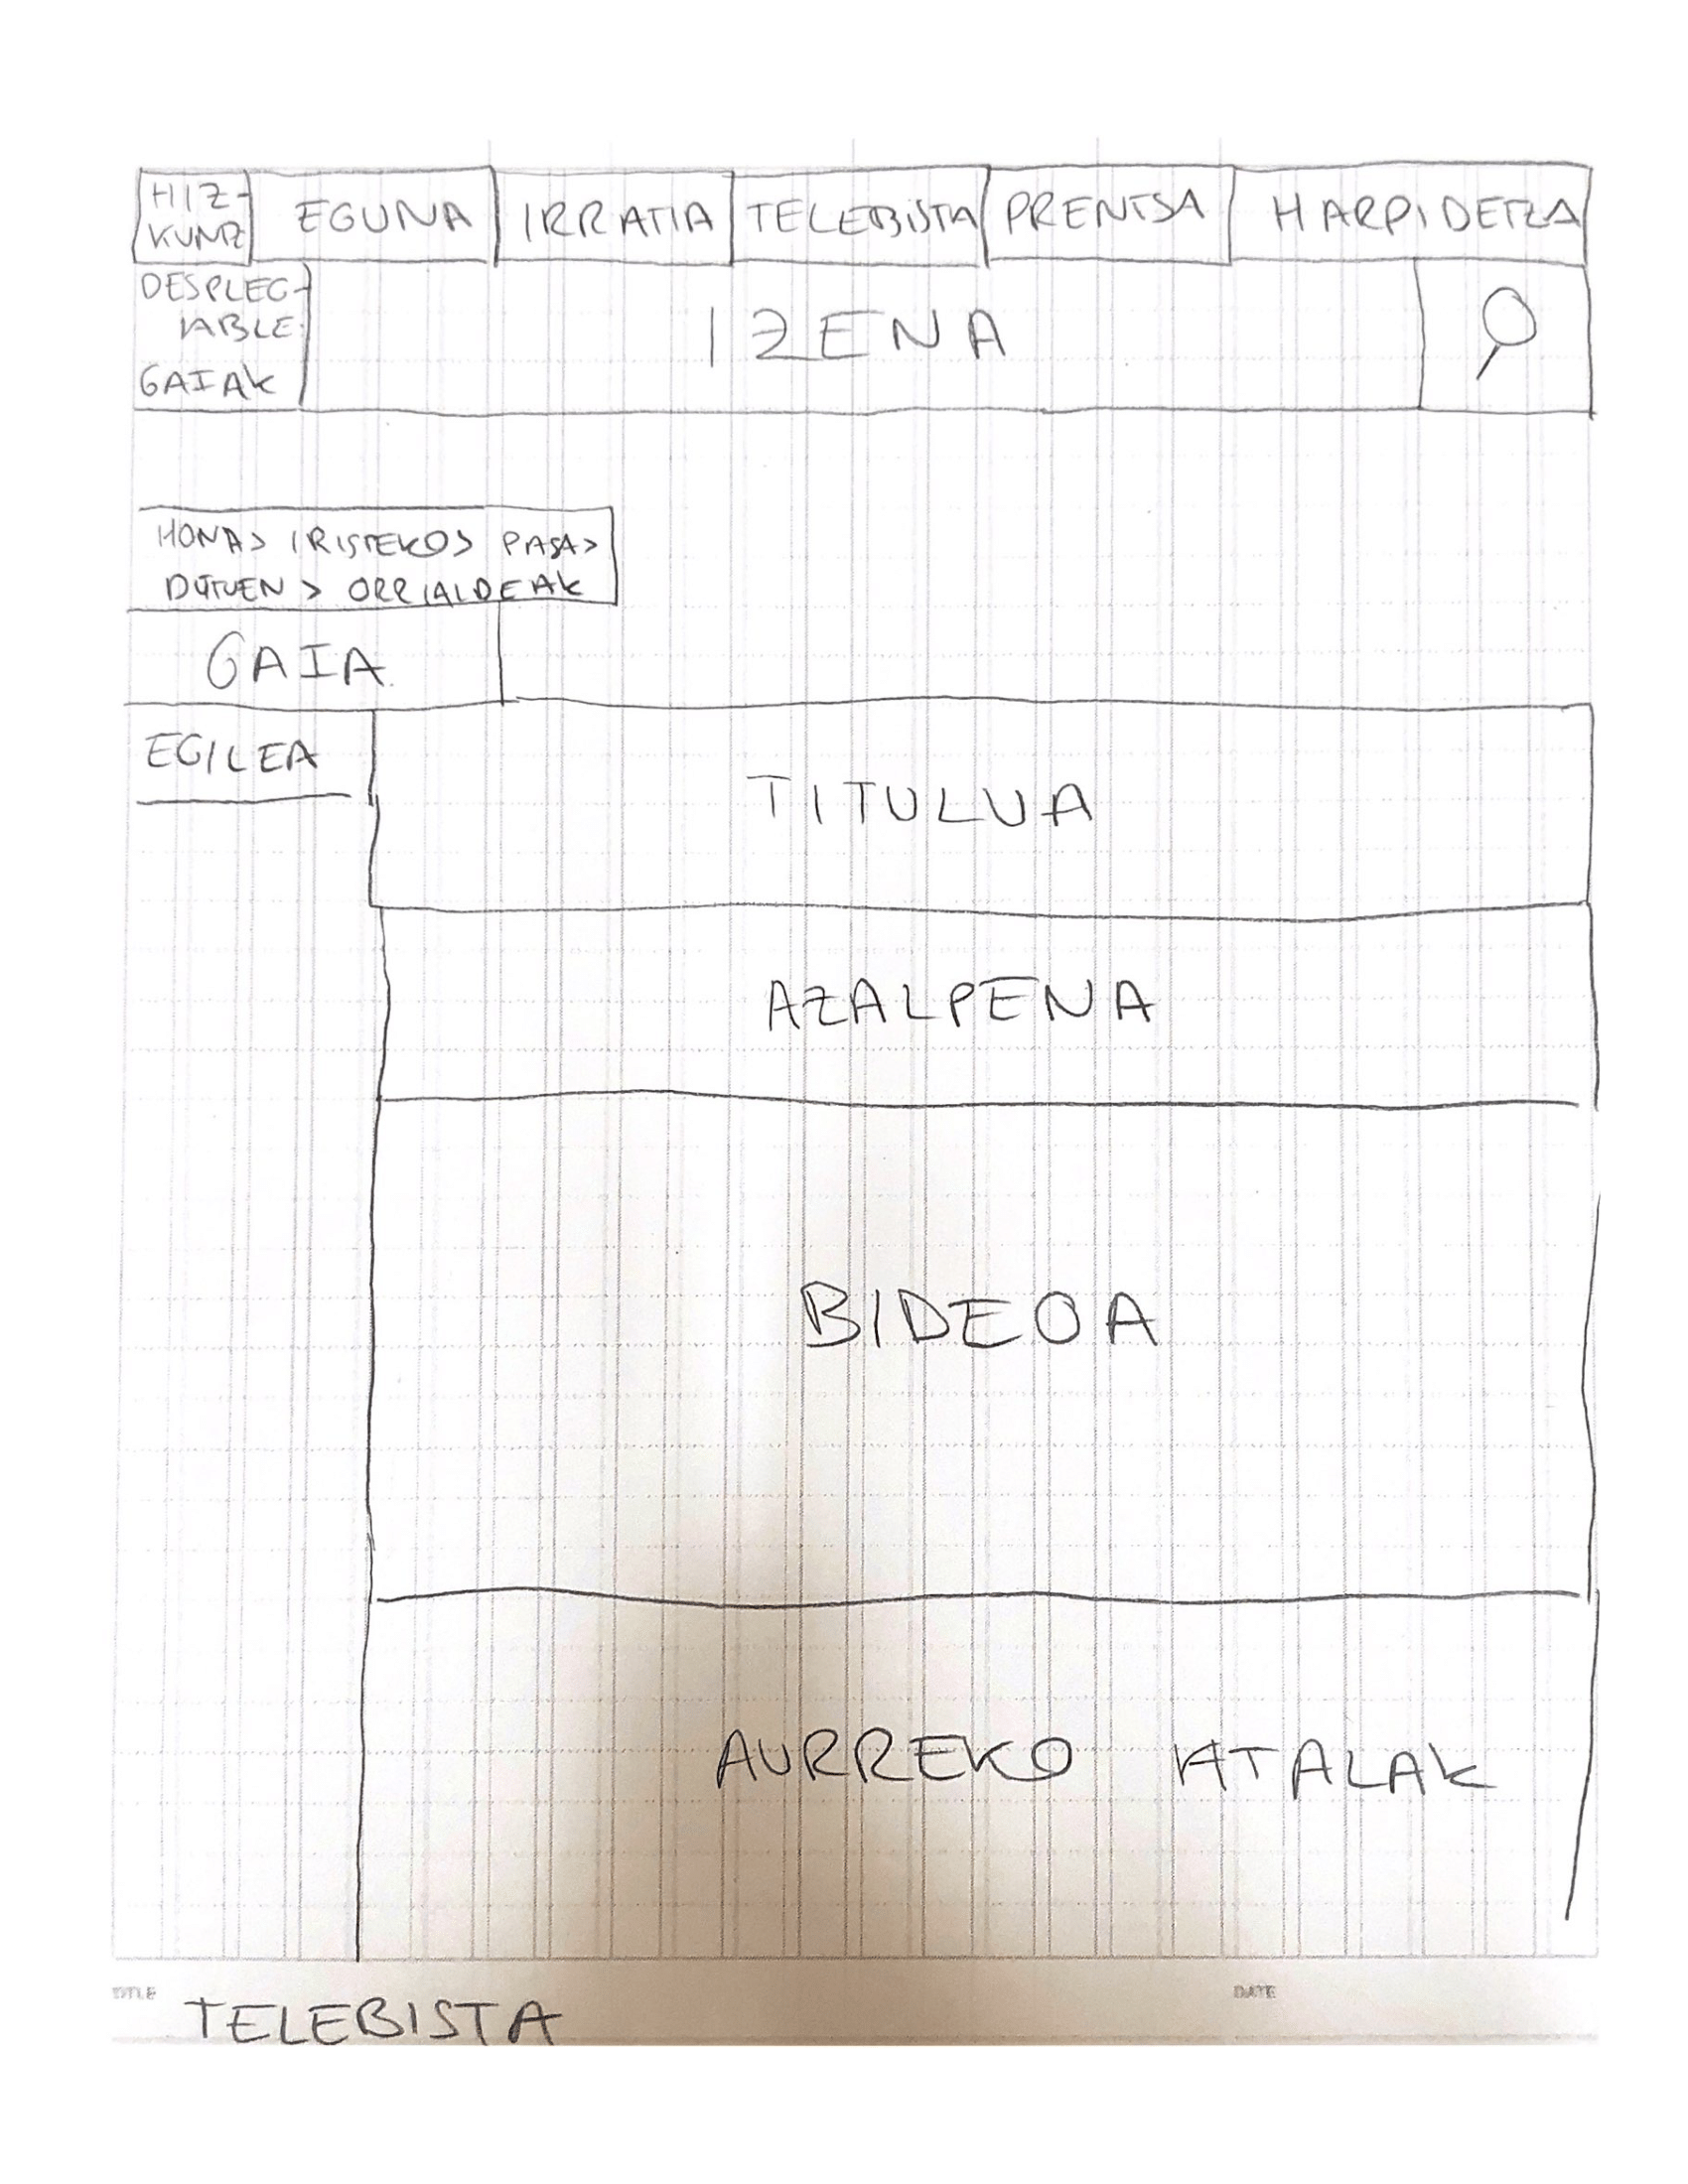 HIZ-
KUNTZ
EGUNA
IRRATIA
TELEBISTA
PRENTSA
HARPIDETZA
DESPLEG-
IABLE
GAIAK
IZENA
HONA> IRISTEKO> PASA>
DITUEN > ORRIALDEAK
GAIA
EGILEA
TITULUA
AZALPENA
BIDEOA
AURREKO ATALAK
TITLE
TELEBISTA
DATE